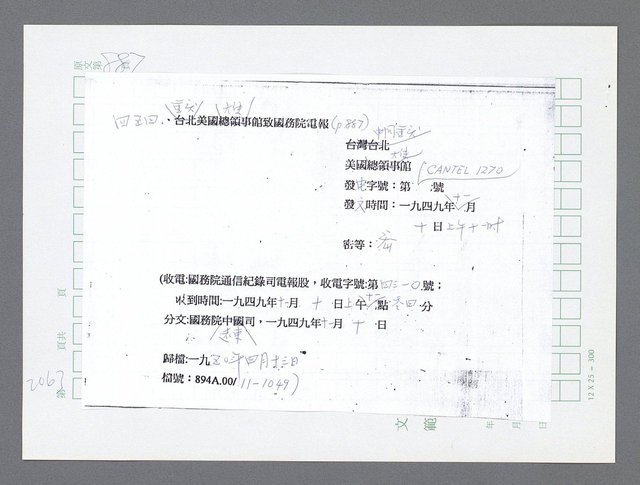 原文第787頁
重慶 大使
四五四、台北美國總領事館致國務院電報(p 867)
台灣台北
美國總領事館 CANTEL 1270
發電字號：第 號
發文時間：一九四九年十一月
十日上午十一時
密等：密
(收電:國務院通信紀錄司電報股，收電字號:第四三一〇號；
收到時間:一九四九年十一月 十 日上午 十一 點零四分
分文:國務院中國司，一九四九年十一月 十 日
遠東
歸檔:一九五〇年四月十三日
檔號：894A.00/11-1049)
第2063頁共 頁
12 X 25 = 300
文範 年 月 日